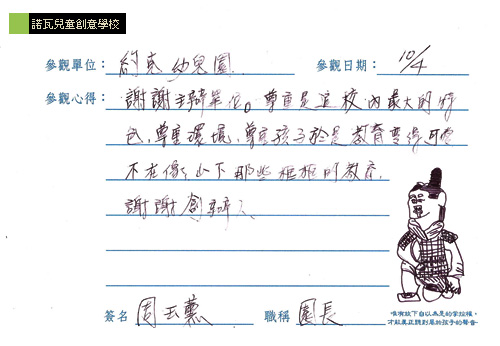 諾瓦兒童創意學校
參觀單位: 約克幼兒園
參觀日期: 10/4
參觀心得: 謝謝主辦單位。尊重是這校內最大的特
色,尊重環境,尊重孩子於是教育變得可愛
不在像山下那些框框的教育.
謝謝創辦人
簽名 周玉薰
職稱 園長
唯有放下自以為是的掌控權,
才能真正聽到屬於孩子的聲音